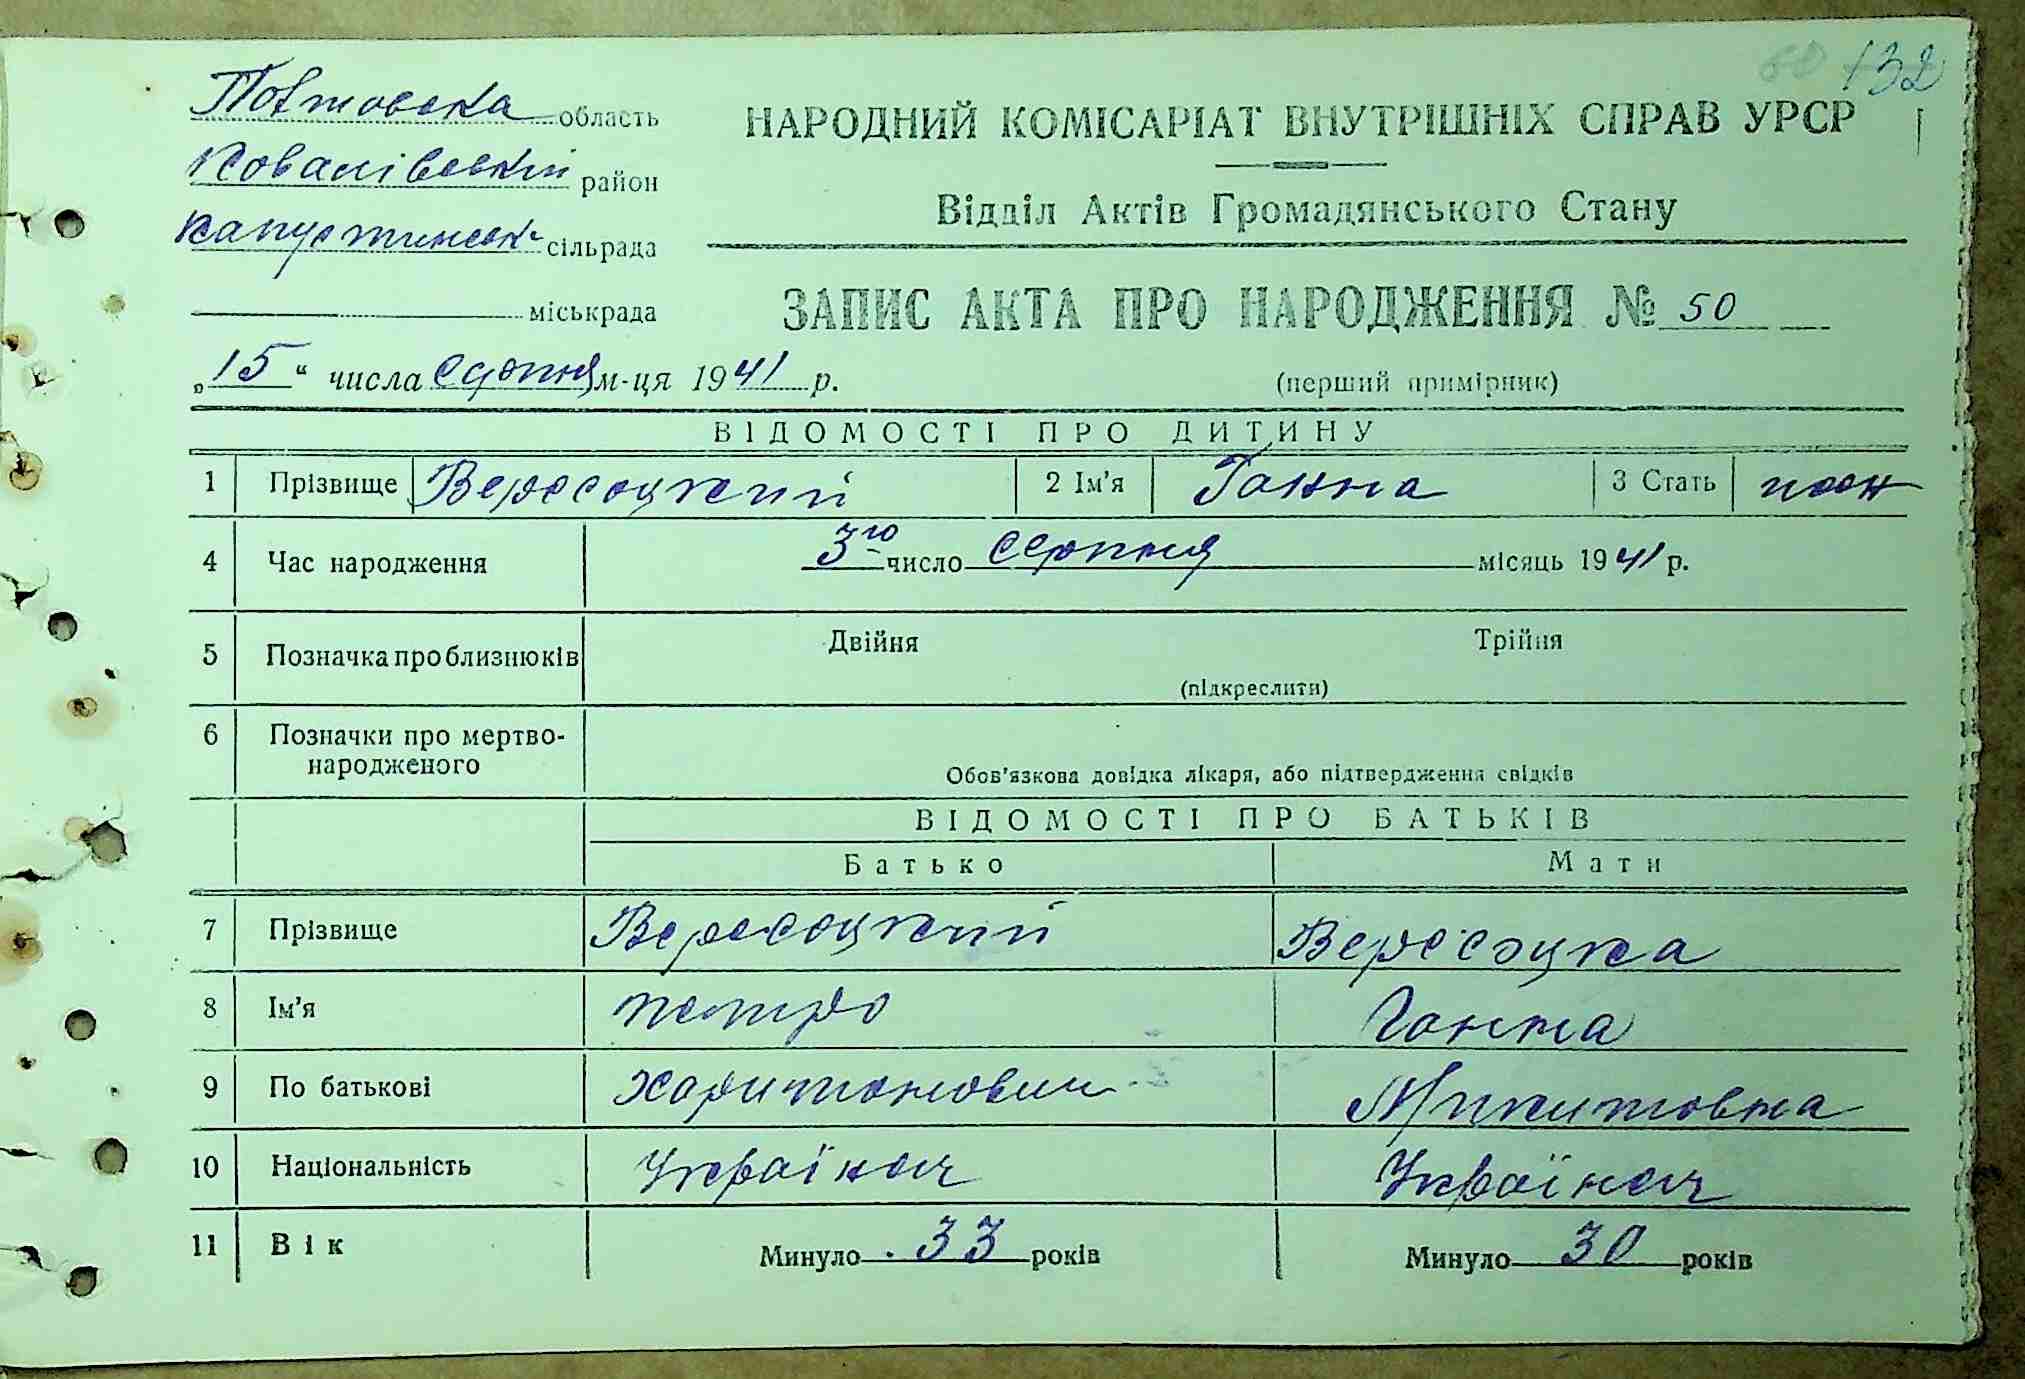 60 132
Полтовська область
НАРОДНИЙ КОМІСАРІАТ ВНУТРІШНІХ СПРАВ УРСР
Ковалівський район
Відділ Актів Громадянського Стану
Капустинськ сільрада
міськрада
ЗАПИС АКТА ПРО НАРОДЖЕННЯ № 50
„15“ числа серпня м-ця 1941 р.
(перший примірник)
ВІДОМОСТІ ПРО ДИТИНУ
1 Прізвище Вересоцкий 2 Ім'я Ганна 3 Стать жон
4 Час народження 3го число серпня місяць 1941 р.
5 Позначка про близнюків Двійня Трійня
(підкреслити)
6 Позначки про мертво-
народженого
Обов'язкова довідка лікаря, або підтвердження свідків
ВІДОМОСТІ ПРО БАТЬКІВ
Батько Мати
7 Прізвище Вересоцкий Вересоцка
8 Ім'я Петро Ганна
9 По батькові Харитонович Микитовна
10 Національність Українец Українец
11 Вік Минуло 33 років Минуло 30 років